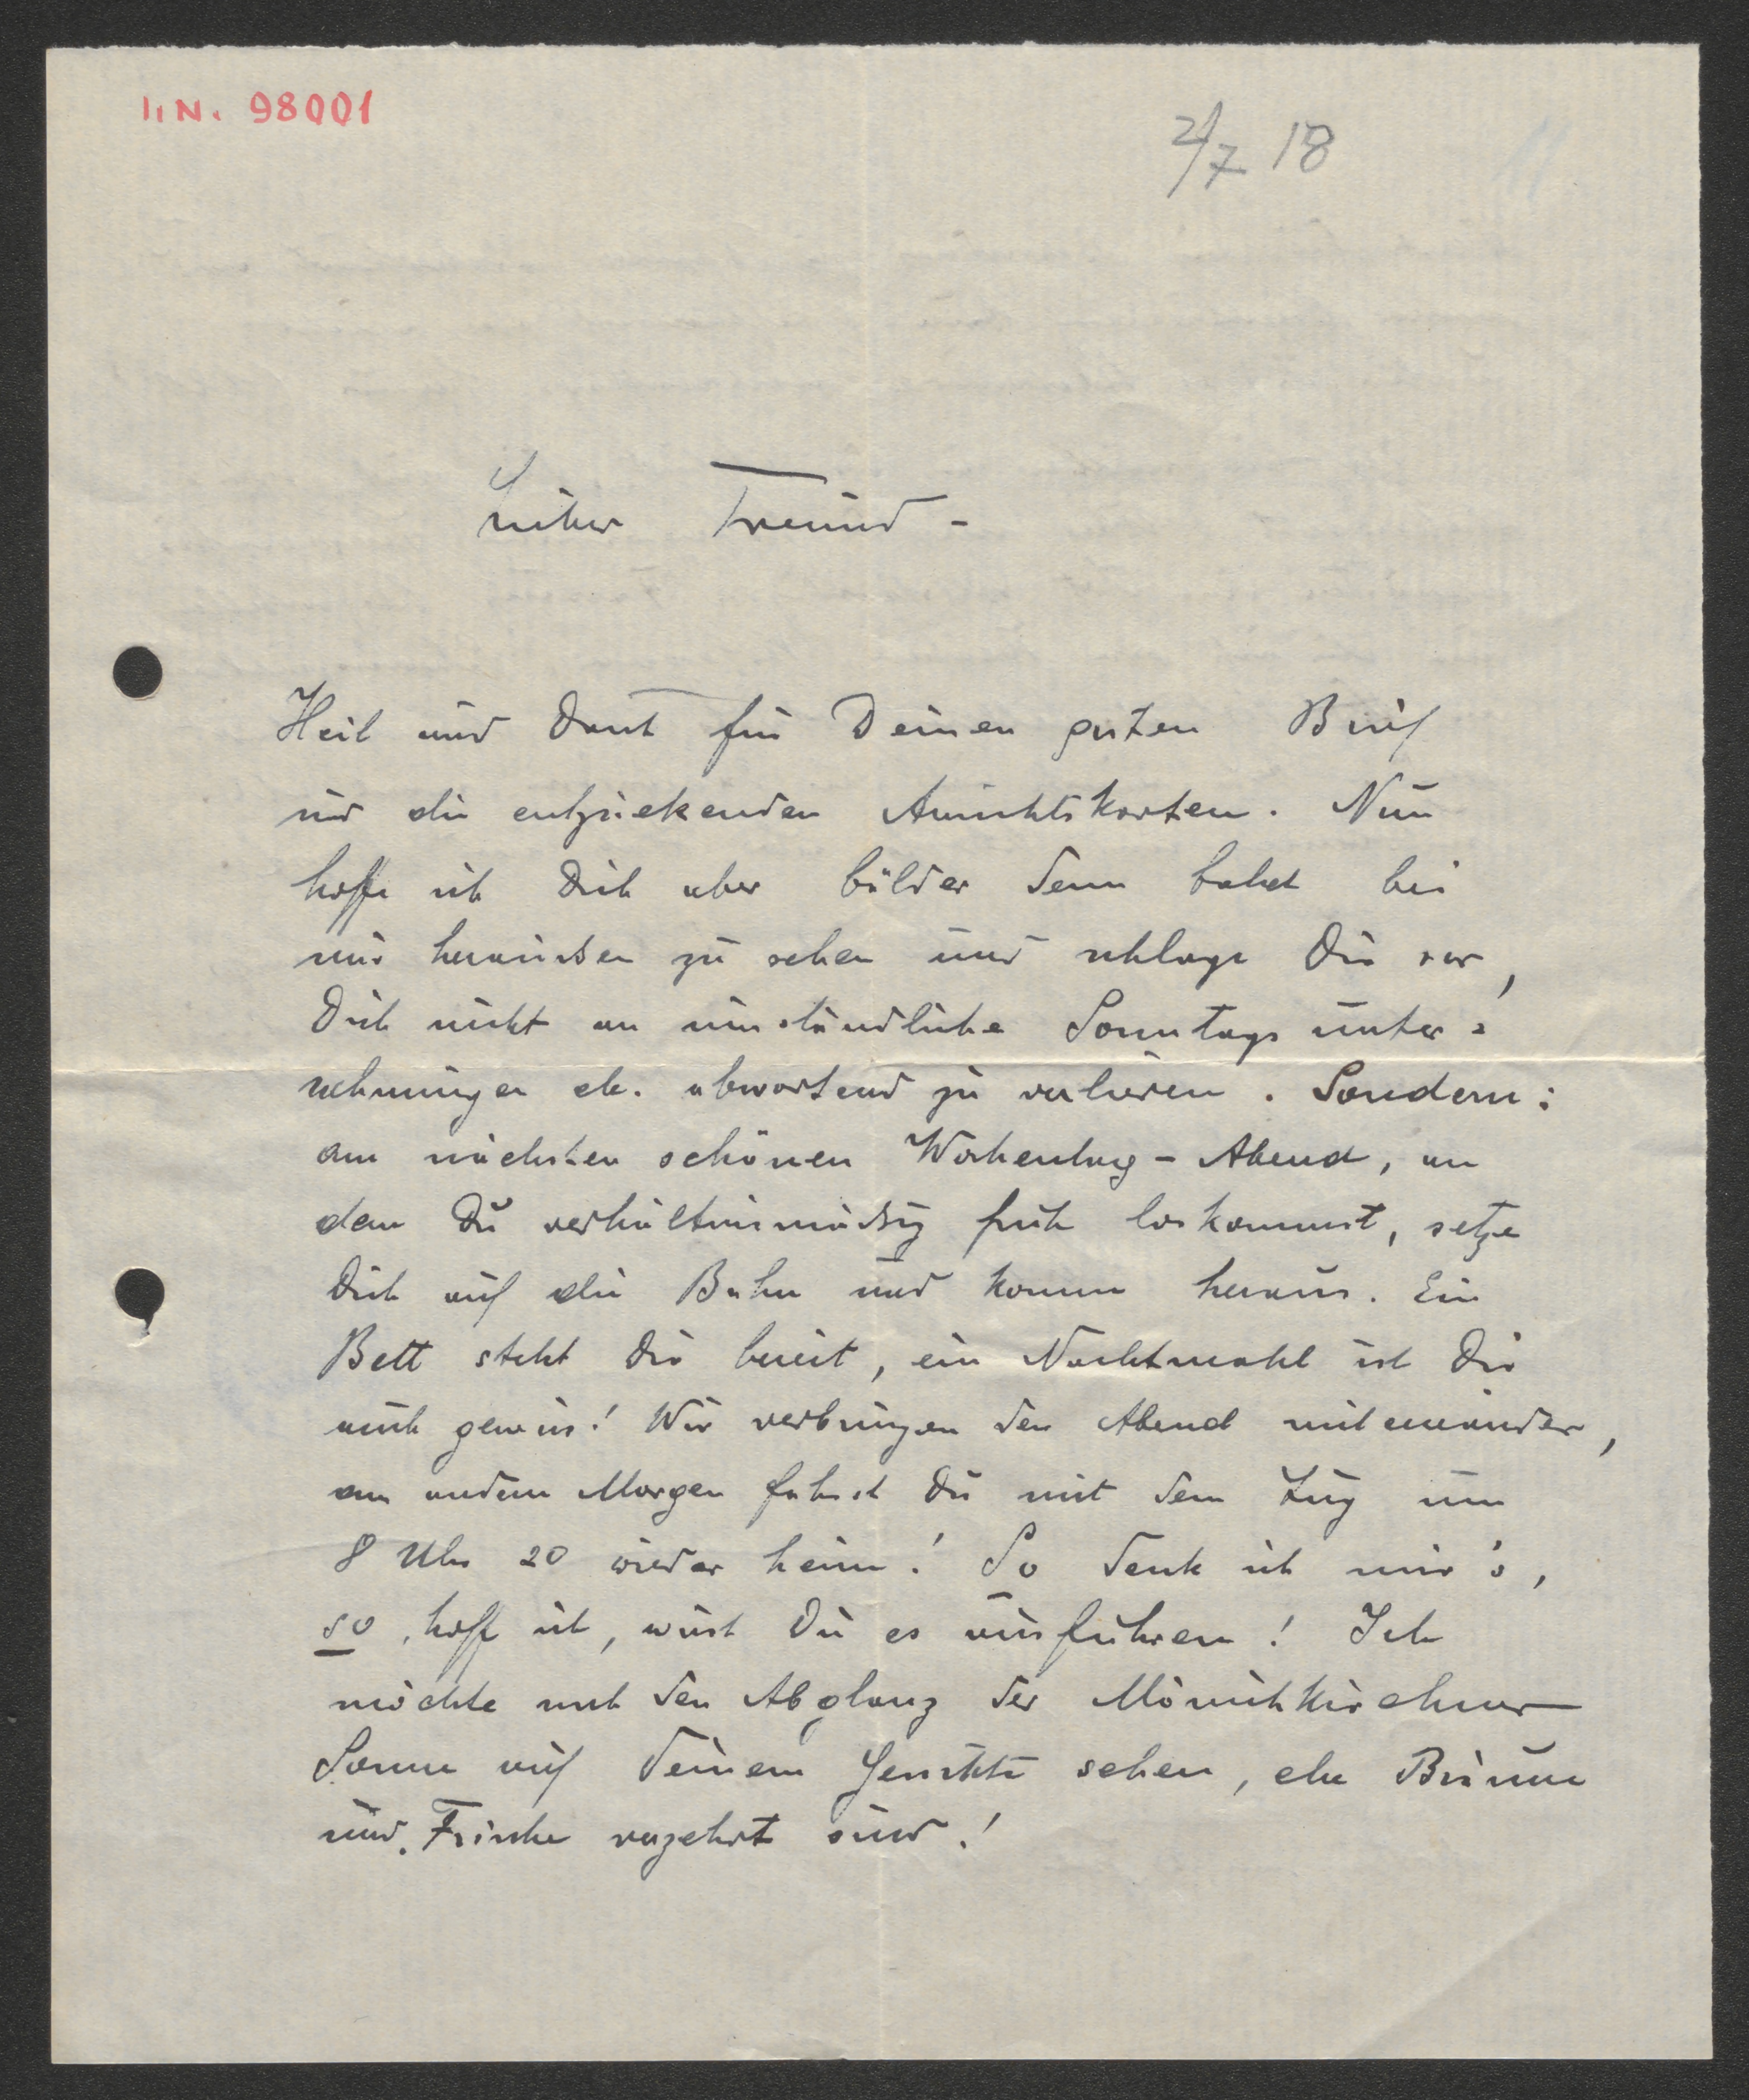 I.N. 98001
2/7 18
11
Lieber Freund -
Heil und Dank für Deinen guten Brief
und die entzückenden Ansichtskarten. Nun
hoffe ich Dich aber bälder denn bald bei
mir heraussen zu sehen und schlage Dir vor,
Dich nicht an umständliche Sonntags unter=
nehmungen etc. abwartend zu verlieren. Sondern:
am nächsten schönen Wochentag - Abend, an
dem Du verhältnismäßig früh loskommst, setze
Dich auf die Bahn und komm heraus. Ein
Bett steht Dir bereit, ein Nachtmahl ist Dir
auch gewiss! Wir verbringen den Abend miteinander,
am andern Morgen fährst Du mit dem Zug um
8 Uhr 20 wieder heim! So denk ich mir's,
so, hoff ich, wirst Du es ausführen! Ich
möchte noch den Abglanz der Mönichkirchner
Sonne auf Deinem Gesichte sehen, ehe Bräune
und Frische verzehrt sind!